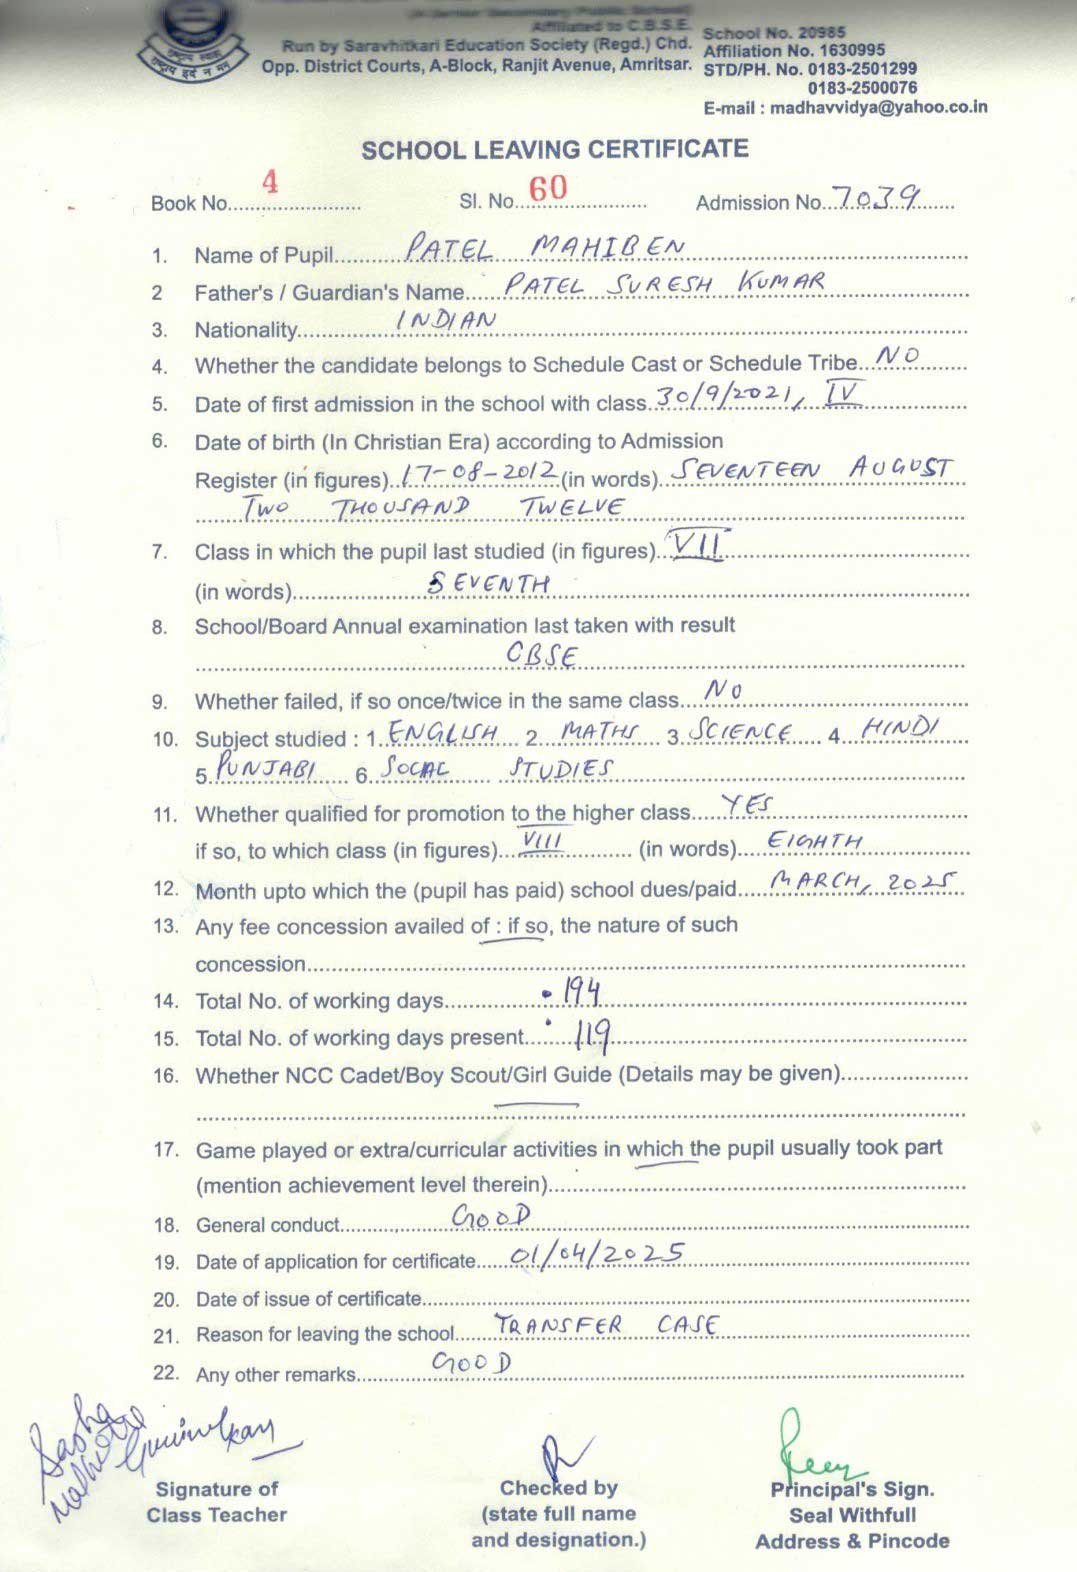 Affiliated to C.B.S.E.
School No. 20985
Run by Saravhitkari Education Society (Regd.) Chd.
Affiliation No. 1630995
Opp. District Courts, A-Block, Ranjit Avenue, Amritsar.
STD/PH. No. 0183-2501299
0183-2500076
E-mail : madhavvidya@yahoo.co.in
SCHOOL LEAVING CERTIFICATE
Book No. 4 Sl. No. 60 Admission No. 7039
1. Name of Pupil PATEL MAHIBEN
2 Father's / Guardian's Name PATEL SURESH KUMAR
3. Nationality INDIAN
4. Whether the candidate belongs to Schedule Cast or Schedule Tribe NO
5. Date of first admission in the school with class 30/9/2021, IV
6. Date of birth (In Christian Era) according to Admission
Register (in figures) 17-08-2012 (in words) SEVENTEEN AUGUST
TWO THOUSAND TWELVE
7. Class in which the pupil last studied (in figures) VII
(in words) SEVENTH
8. School/Board Annual examination last taken with result
CBSE
9. Whether failed, if so once/twice in the same class NO
10. Subject studied : 1. ENGLISH 2. MATHS 3. SCIENCE 4. HINDI
5. PUNJABI 6. SOCIAL STUDIES
11. Whether qualified for promotion to the higher class YES
if so, to which class (in figures) VIII (in words) EIGHTH
12. Month upto which the (pupil has paid) school dues/paid MARCH, 2025
13. Any fee concession availed of : if so, the nature of such
concession
14. Total No. of working days 194
15. Total No. of working days present 119
16. Whether NCC Cadet/Boy Scout/Girl Guide (Details may be given)
17. Game played or extra/curricular activities in which the pupil usually took part
(mention achievement level therein)
18. General conduct GOOD
19. Date of application for certificate 01/04/2025
20. Date of issue of certificate
21. Reason for leaving the school TRANSFER CASE
22. Any other remarks GOOD
Signature of
Class Teacher
Checked by
(state full name
and designation.)
Principal's Sign.
Seal Withfull
Address & Pincode